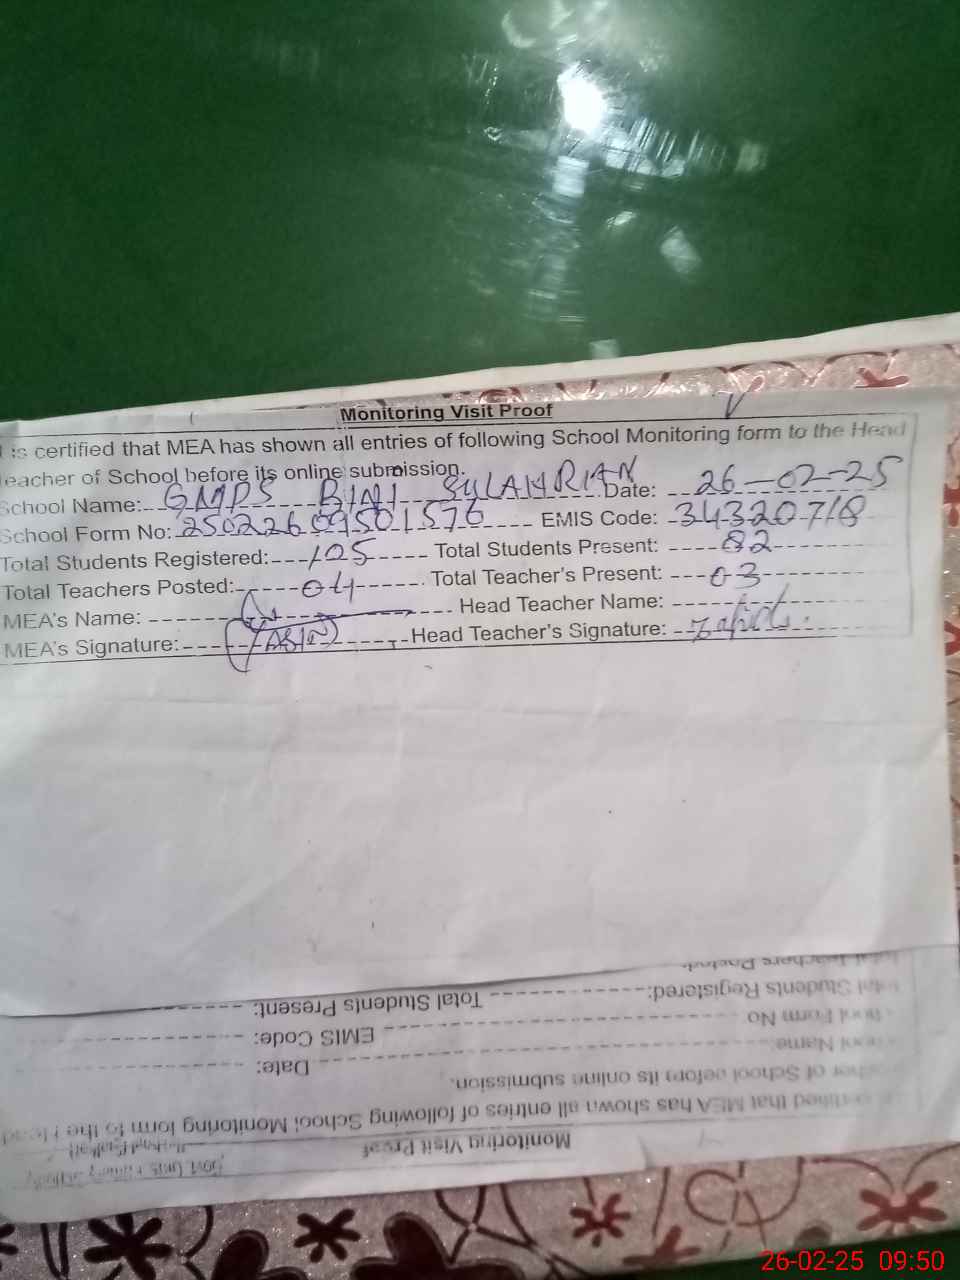 Monitoring Visit Proof
is certified that MEA has shown all entries of following School Monitoring form to the Head
eacher of School before its online submission.
School Name: GMPS BINI SULAHRIAN Date: 26-02-25
School Form No: 25022609501576 EMIS Code: 34320718
Total Students Registered: 105 Total Students Present: 82
Total Teachers Posted: 04 Total Teacher's Present: 03
MEA's Name: Head Teacher Name:
MEA's Signature: (YASIN) Head Teacher's Signature: Zahid
Monitoring Visit Proof
that MEA has shown all entries of following School Monitoring form to the
of School before its online submission.
Name: Date:
Form No EMIS Code:
Students Registered: Total Students Present:
Teachers Posted:
26-02-25 09:50